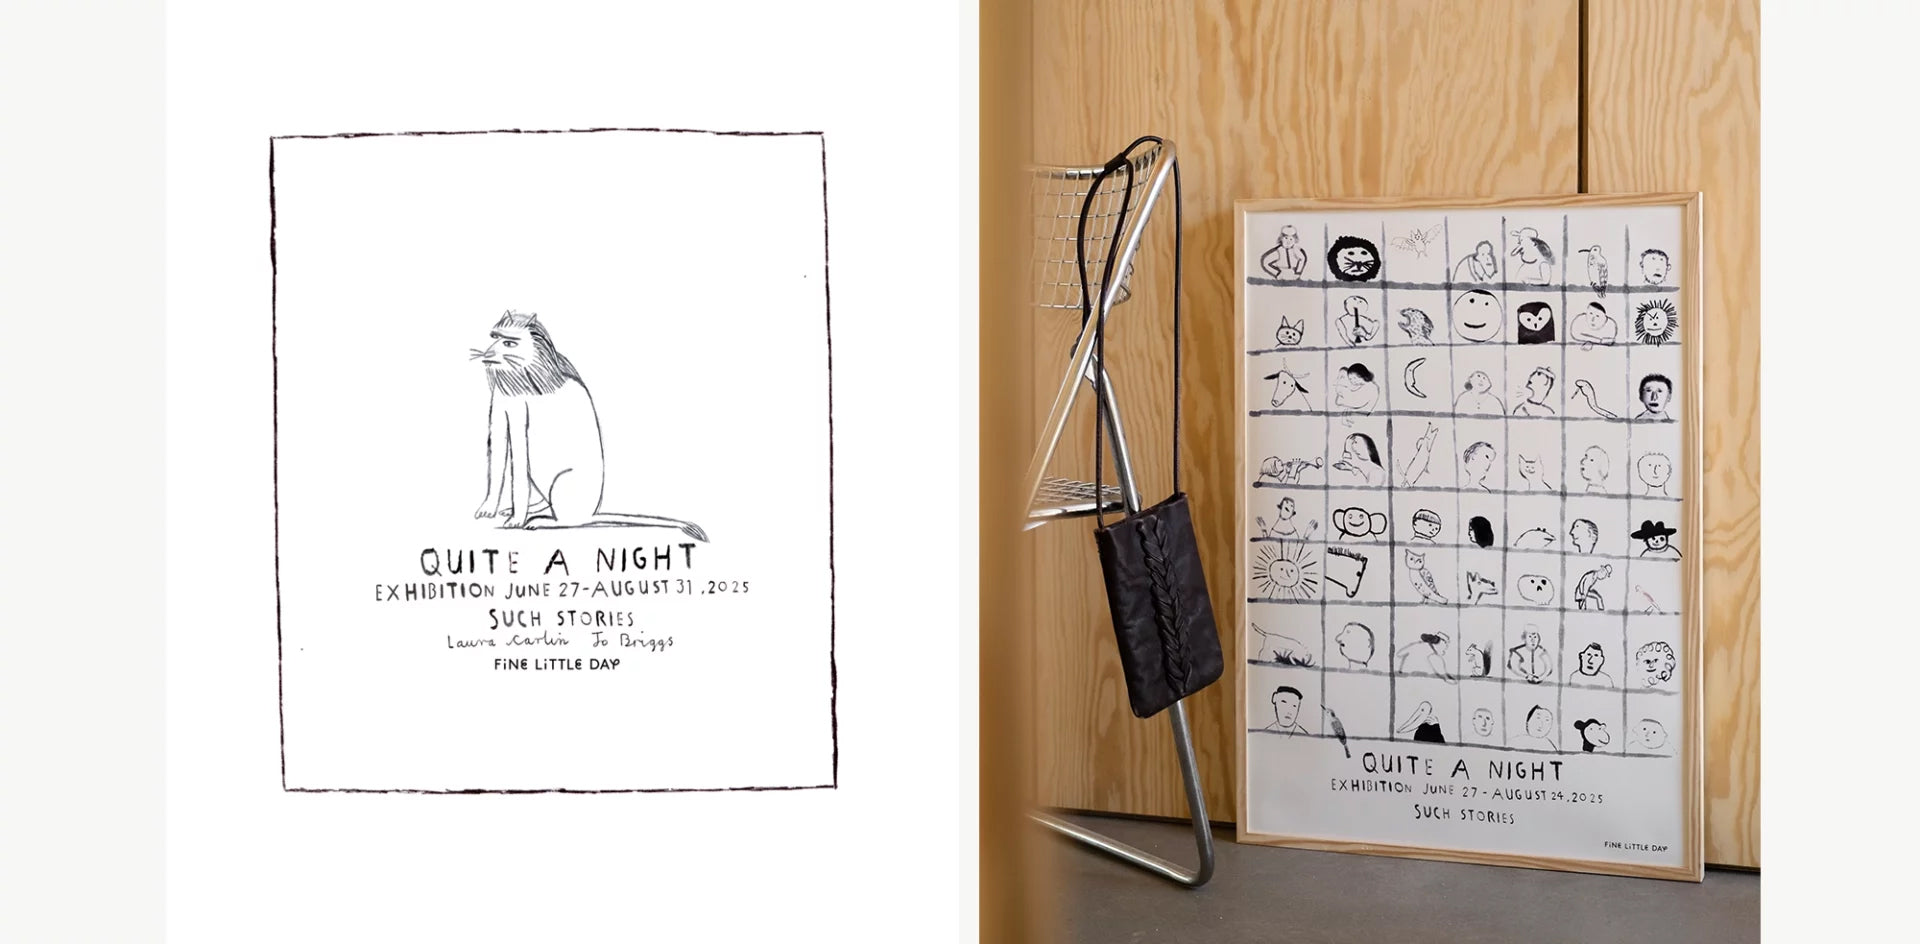 QUITE A NIGHT
EXHIBITION JUNE 27-AUGUST 31, 2025
SUCH STORIES
Laura Carlin Jo Briggs
FiNE LiTTLE DAY
QUITE A NIGHT
EXHIBITION JUNE 27 - AUGUST 24, 2025
SUCH STORIES
FiNE LiTTLE DAY